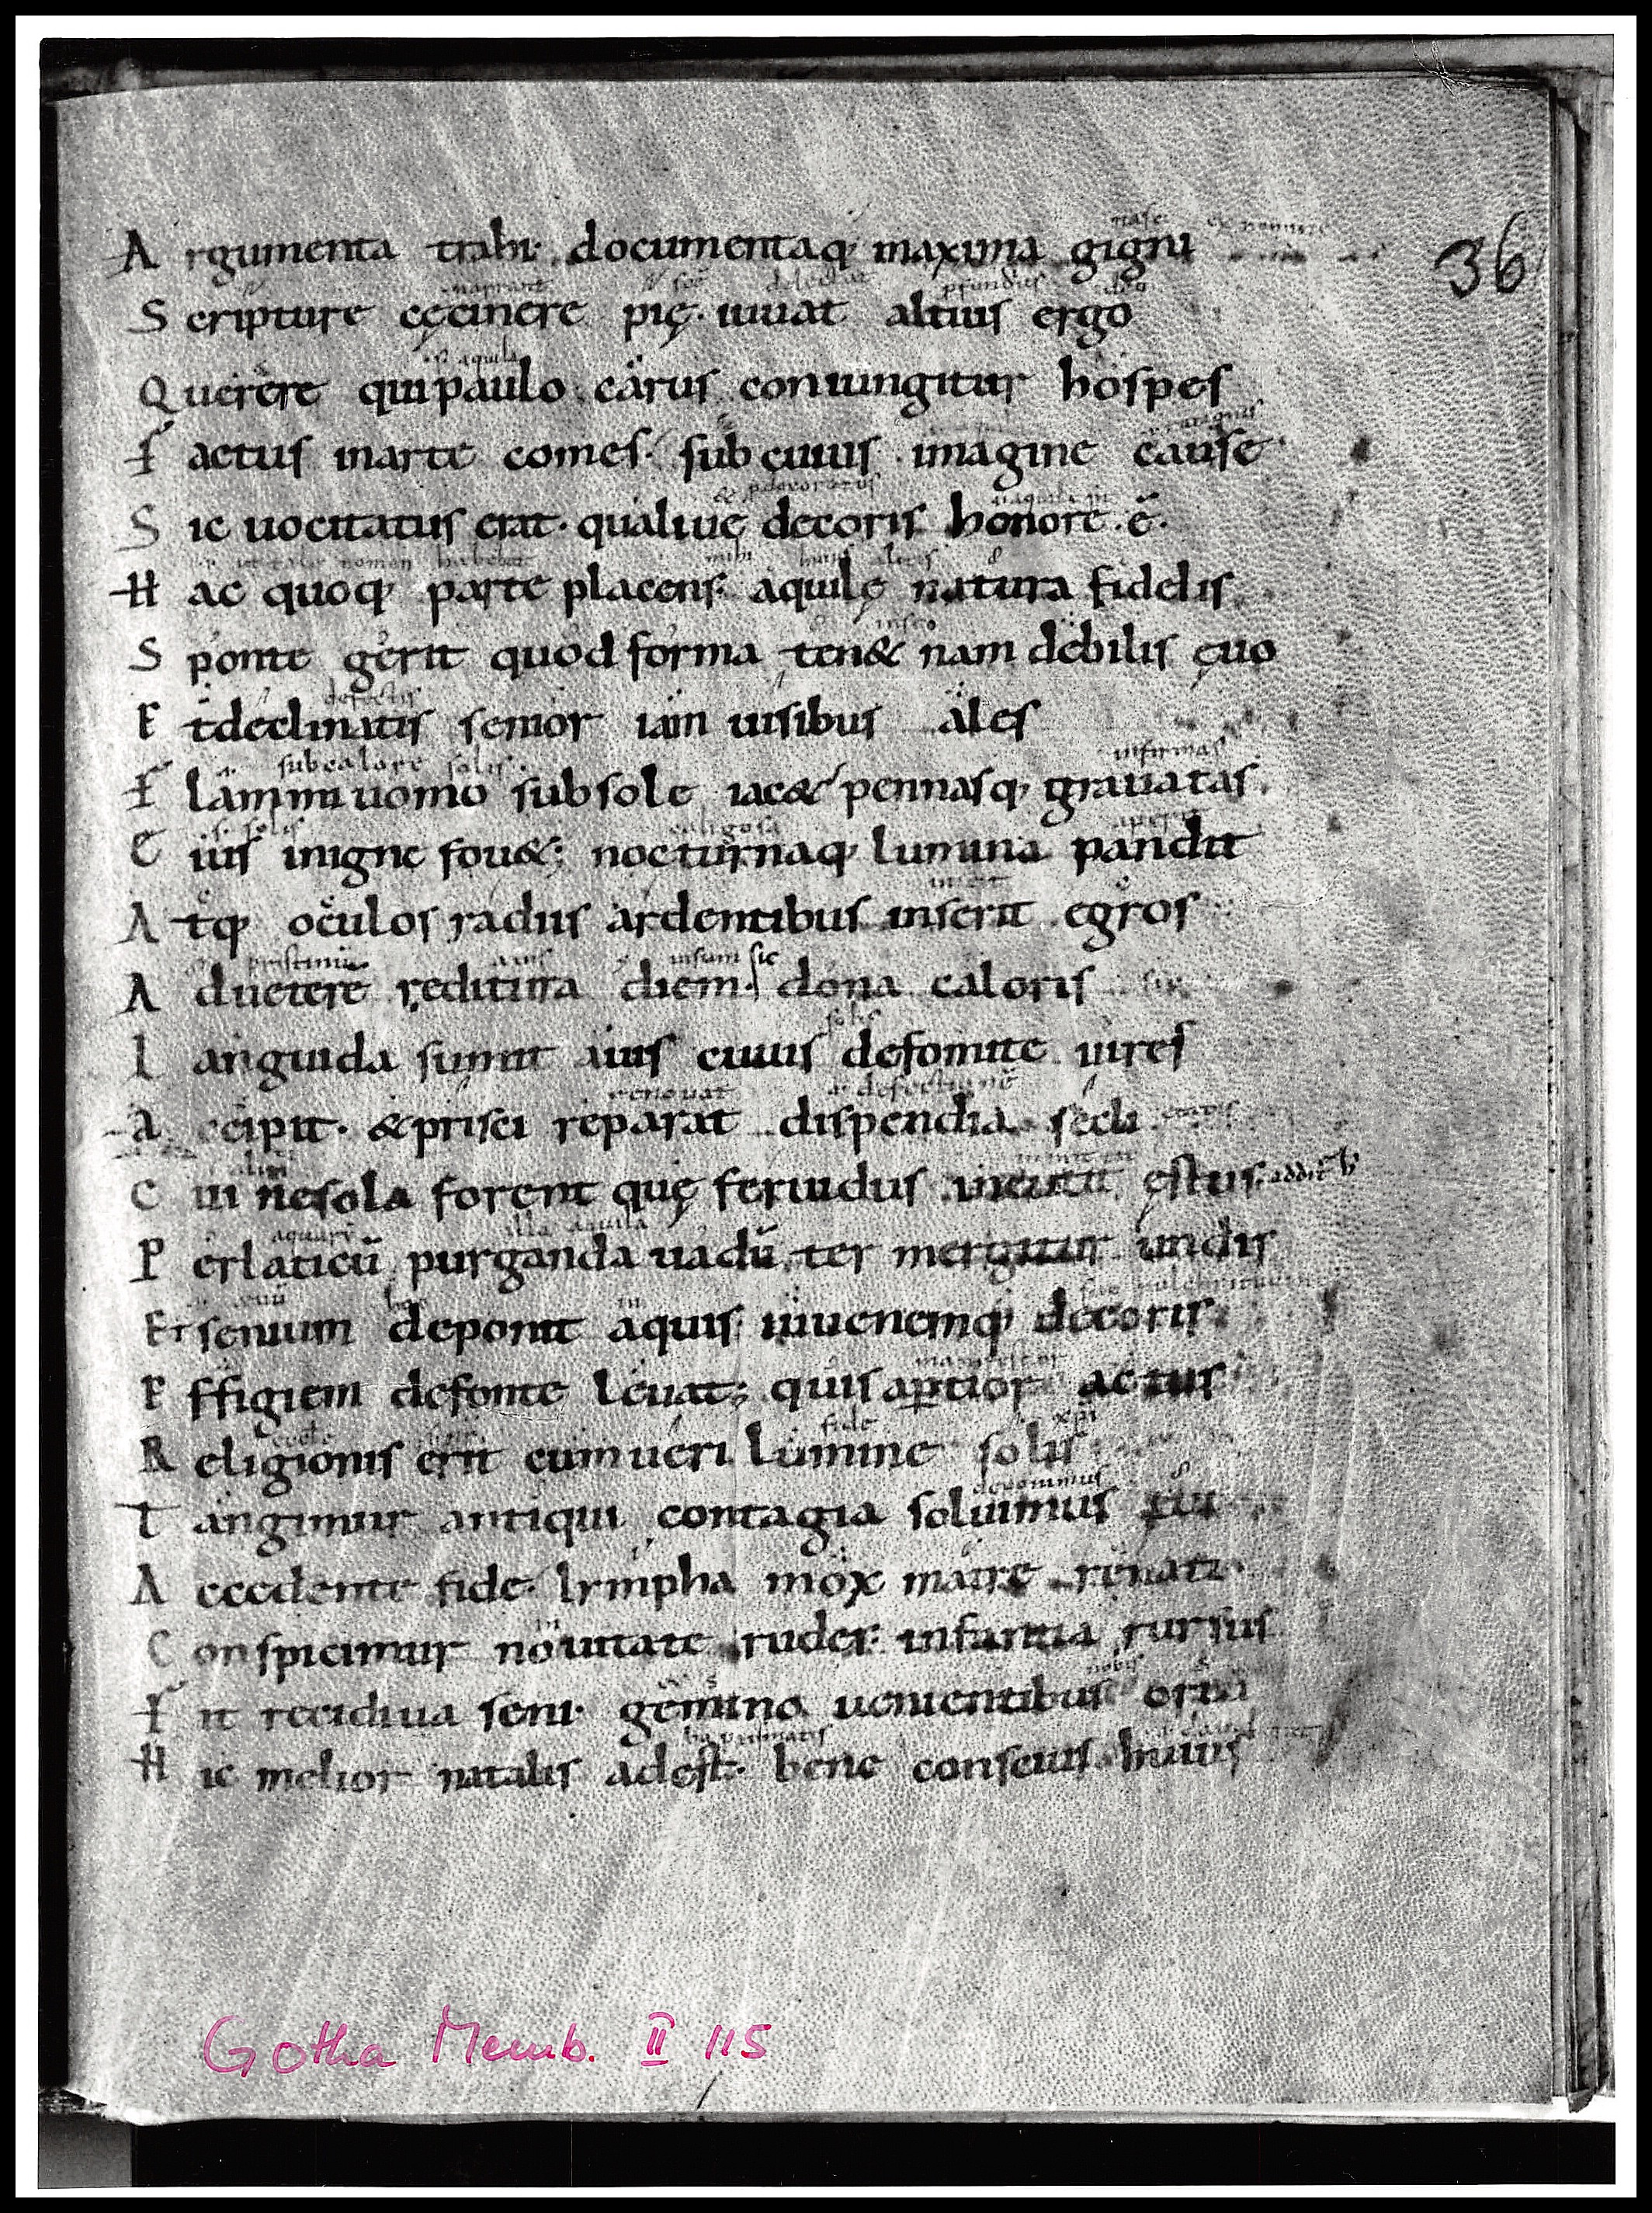 36
Argumenta trahi. documentaq; maxima gigni
Scripture cęcinere pię. iuuat altius ergo
Querere qui paulo carus coniungitur hospes
Factus in arte comes. sub cuius imagine cause
Sic uocitatus erat. qualiue decoris honore .ē.
Hac quoq; parte placens. aquilę natura fidelis
Sponte gerit quod forma ten& nam debilis ęuo
Et declinatis senior iam uisibus ales
subcalore solis infirmas
Flammiuomo sub sole iac& pennasq; grauatas.
.s. solis caligosa
Eius in igne fou&; nocturnaq; lumina pandit
Atq; oculos radiis ardentibus inserit egros
insum sic
Aduetere reditura diem. dona caloris
Languida sumit auis cuius defomite uires
renouat
Accipit. & prisci reparat dispendia secli
Cui ne sola forent quę feruidus estus. addit
illa aquila
Per laticū purganda uadū ter mergitur undis
Et senium deponit aquis; iuuenemq; decoris
Effigiem defonte leuat; quis aptior actus
fide xpi
Religionis erit cum ueri lumine solis
deponimus
Tangimur antiqui contagia soluimus
Accedente fide. lympha mox matre renati
Conspicimur nouitate rudes. infantia rursus
nobis
Fit recidiua seni. gemino uenientibus ortu
Hic melior natalis adest. bene conscius huius
Gotha Memb. II 115